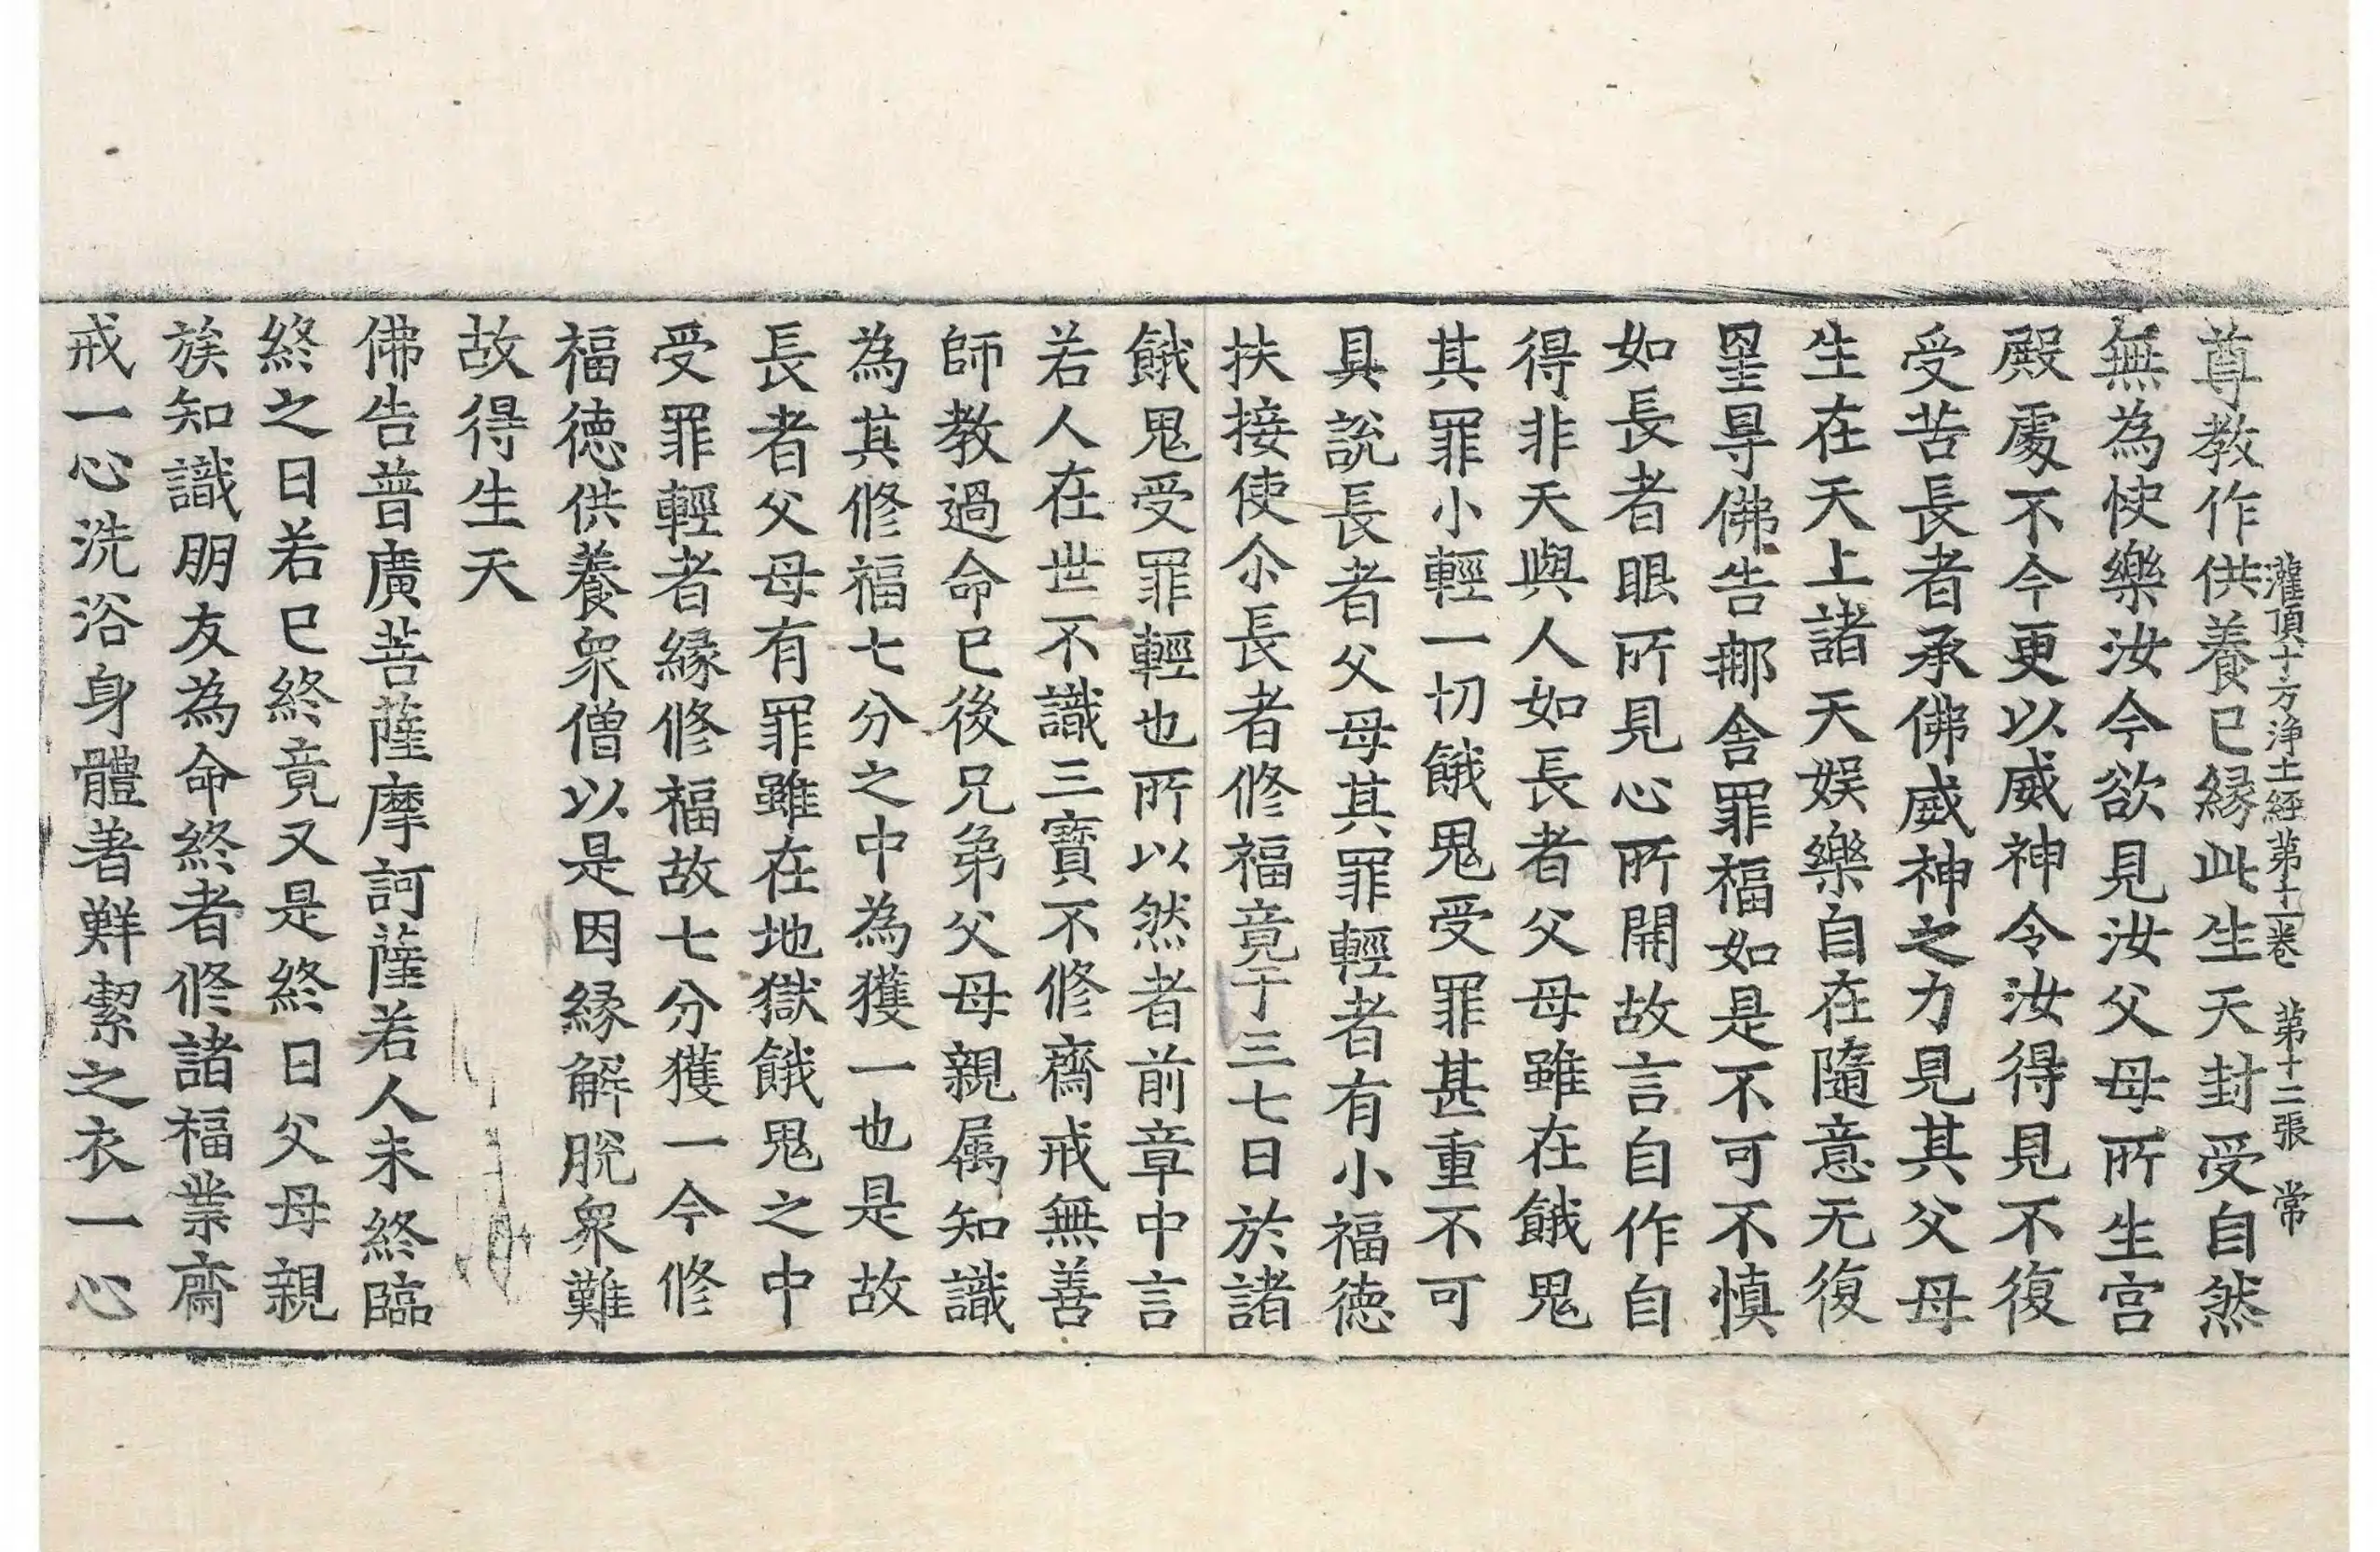 灌頂十方浄土經第十一卷 第十二張 常
尊教作供養已縁此生天封受自然
無為快樂汝今欲見汝父母所生宫
殿處不今更以威神令汝得見不復
受苦長者承佛威神之力見其父母
生在天上諸天娱樂自在隨意无復
罣㝵佛告𨚗舍罪福如是不可不慎
如長者眼所見心所開故言自作自
得非天與人如長者父母雖在餓鬼
其罪小輕一切餓鬼受罪甚重不可
具說長者父母其罪輕者有小福徳
扶接使尒長者修福竟于三七日於諸
餓鬼受罪輕也所以然者前章中言
若人在世不識三寶不修齋戒無善
師教過命已後兄弟父母親属知識
為其修福七分之中為獲一也是故
長者父母有罪雖在地獄餓鬼之中
受罪輕者縁修福故七分獲一今修
福徳供養衆僧以是因縁解脫衆難
故得生天
佛告普廣菩薩摩訶薩若人未終臨
終之日若已終竟又是終日父母親
族知識朋友為命終者修諸福業齋
戒一心洗浴身體著鮮潔之衣一心